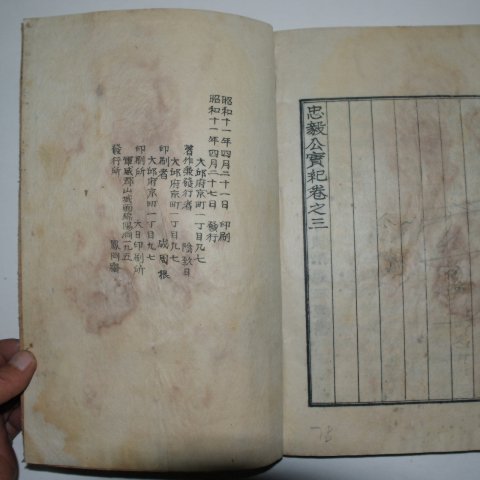 忠毅公實紀卷之三
昭和十一年四月二十一日 印刷
昭和十一年四月二十七日 發行
大邱府京町一丁目九七
著作兼發行者 陰致日
大邱府京町一丁目九七
印刷者 成周根
大邱府京町一丁目九七
印刷所 大日印刷所
軍威郡山城面
發行所 鳳岡齋